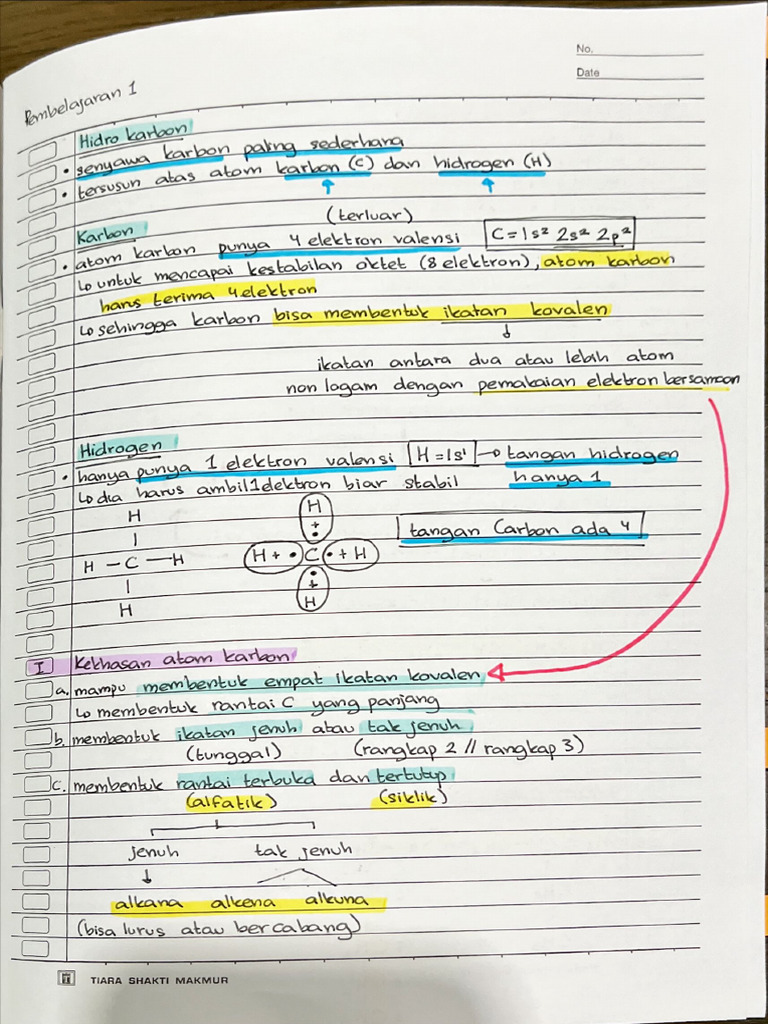 No.
Date
Pembelajaran 1
Hidro karbon
• senyawa karbon paling sederhana
• tersusun atas atom karbon (C) dan hidrogen (H)
(terluar)
Karbon
• atom karbon punya 4 elektron valensi C = 1s² 2s² 2p²
↳ untuk mencapai kestabilan oktet (8 elektron), atom karbon
harus terima 4 elektron
↳ sehingga karbon bisa membentuk ikatan kovalen
↓
ikatan antara dua atau lebih atom
non logam dengan pemakaian elektron bersamaan
Hidrogen
• hanya punya 1 elektron valensi H = 1s¹ → tangan hidrogen
hanya 1
↳ dia harus ambil 1 elektron biar stabil
H H
| + •
H - C - H H + • C • + H tangan Carbon ada 4
| • +
H H
I Kekhasan atom karbon
a. mampu membentuk empat ikatan kovalen
↳ membentuk rantai C yang panjang
b. membentuk ikatan jenuh atau tak jenuh
(tunggal) (rangkap 2 // rangkap 3)
c. membentuk rantai terbuka dan tertutup
(alfatik) (siklik)
jenuh tak jenuh
↓
alkana alkena alkuna
(bisa lurus atau bercabang)
TIARA SHAKTI MAKMUR